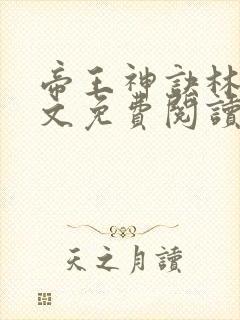 帝王神訣林
文免費閱讀
天之月讀